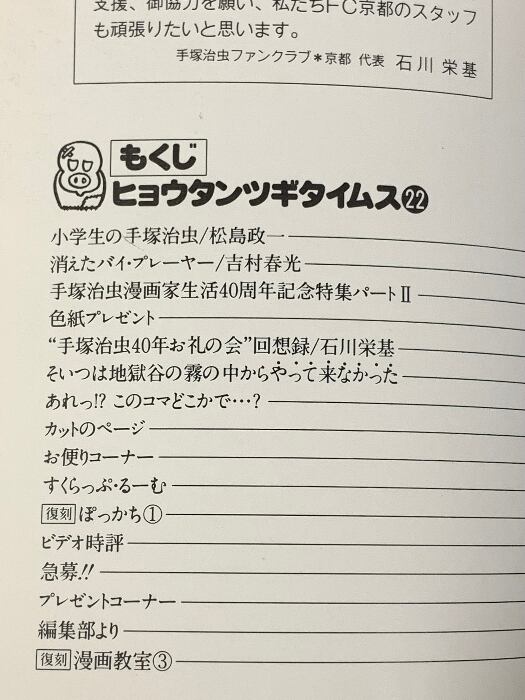 支援、御協力を願い、私たちFC京都のスタッフ
も頑張りたいと思います。
手塚治虫ファンクラブ*京都 代表 石川 栄基
もくじ
ヒョウタンツギタイムス㉒
小学生の手塚治虫/松島政一
消えたバイ・プレーヤー/吉村春光
手塚治虫漫画家生活40周年記念特集パートⅡ
色紙プレゼント
“手塚治虫40年お礼の会”回想録/石川栄基
そいつは地獄谷の霧の中からやって来なかった
あれっ!? このコマどこかで…?
カットのページ
お便りコーナー
すくらっぷ・るーむ
復刻 ぽっかち①
ビデオ時評
急募!!
プレゼントコーナー
編集部より
復刻 漫画教室③